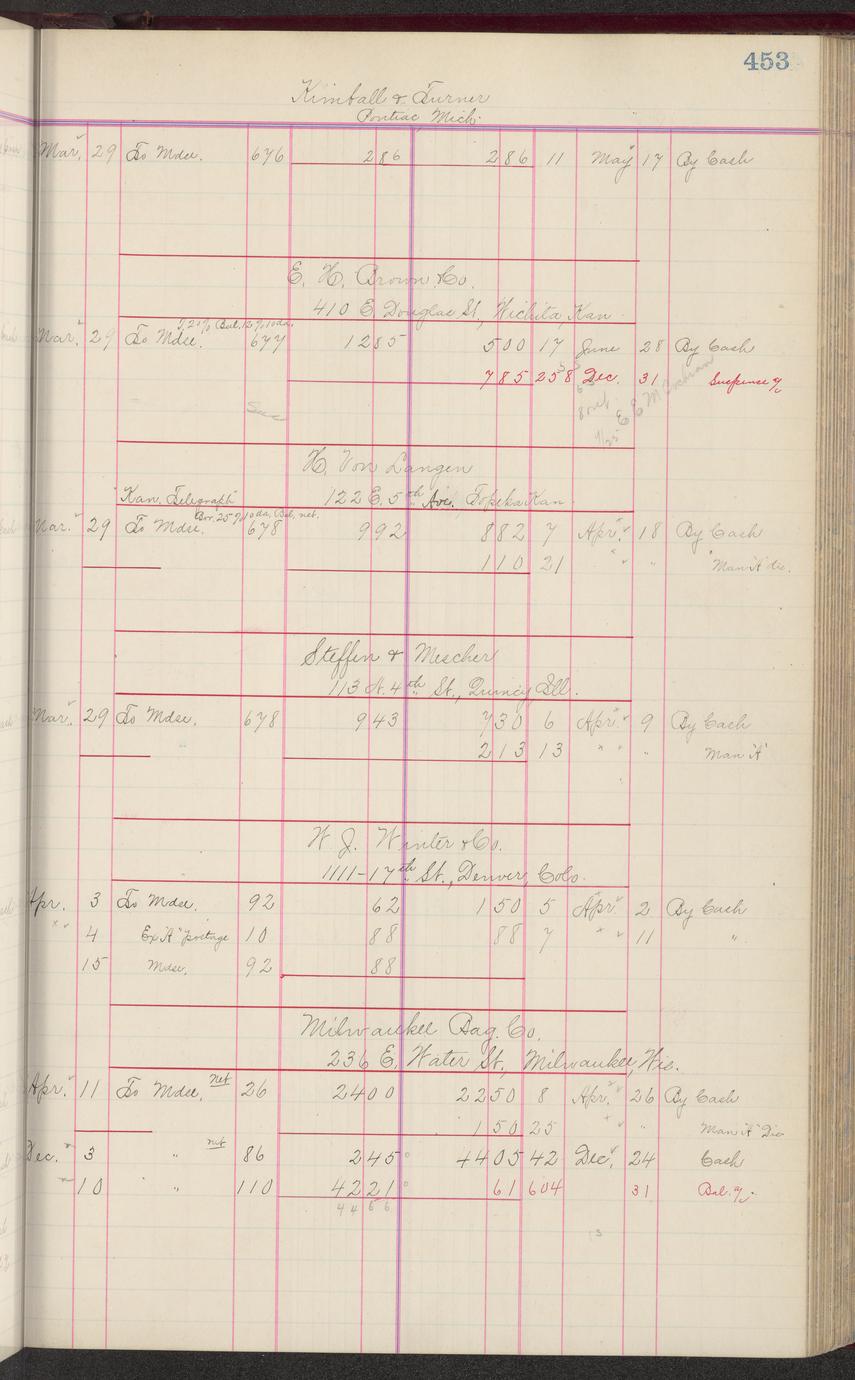 453
Kimball & Turner
Pontiac Mich.
Mar. 29 To Mdse. 676 2 86 2 86 11 May 17 By Cash
E. H. Brown & Co.
410 E Douglas St, Wichita, Kan.
Mar. 29 To Mdse. 677 12 85 5 00 17 June 28 By Cash
7 85 258 Dec. 31 Suspense a/c
H. Von Langen
"Kan. Telegraph" 122 E. 5th Ave. Topeka Kan.
Bor. 25% 10 da. Bal. net.
Mar. 29 To Mdse. 678 9 92 8 82 7 Apr. 18 By Cash
1 10 21 " " Man "A" dis.
Steffen & Mescher
113 N. 4th St., Quincy Ill.
Mar. 29 To Mdse. 678 9 43 7 30 6 Apr. 9 By Cash
2 13 13 " " Man "A"
W. J. Winter & Co.
1111-17th St., Denver, Colo.
Apr. 3 To Mdse. 92 62 1 50 5 Apr. 2 By Cash
" 4 Ex "A" postage 10 88 88 7 " 11 "
15 Mdse. 92 88
Milwaukee Bag. Co.
236 E. Water St., Milwaukee, Wis.
Apr. 11 To Mdse. net 26 24 00 22 50 8 Apr. 26 By Cash
1 50 25 " " Man "A" Dis
Dec. 3 " net 86 2 45 44 05 42 Dec. 24 Cash
10 " 110 42 21 61 604 31 Bal. a/c
44 66